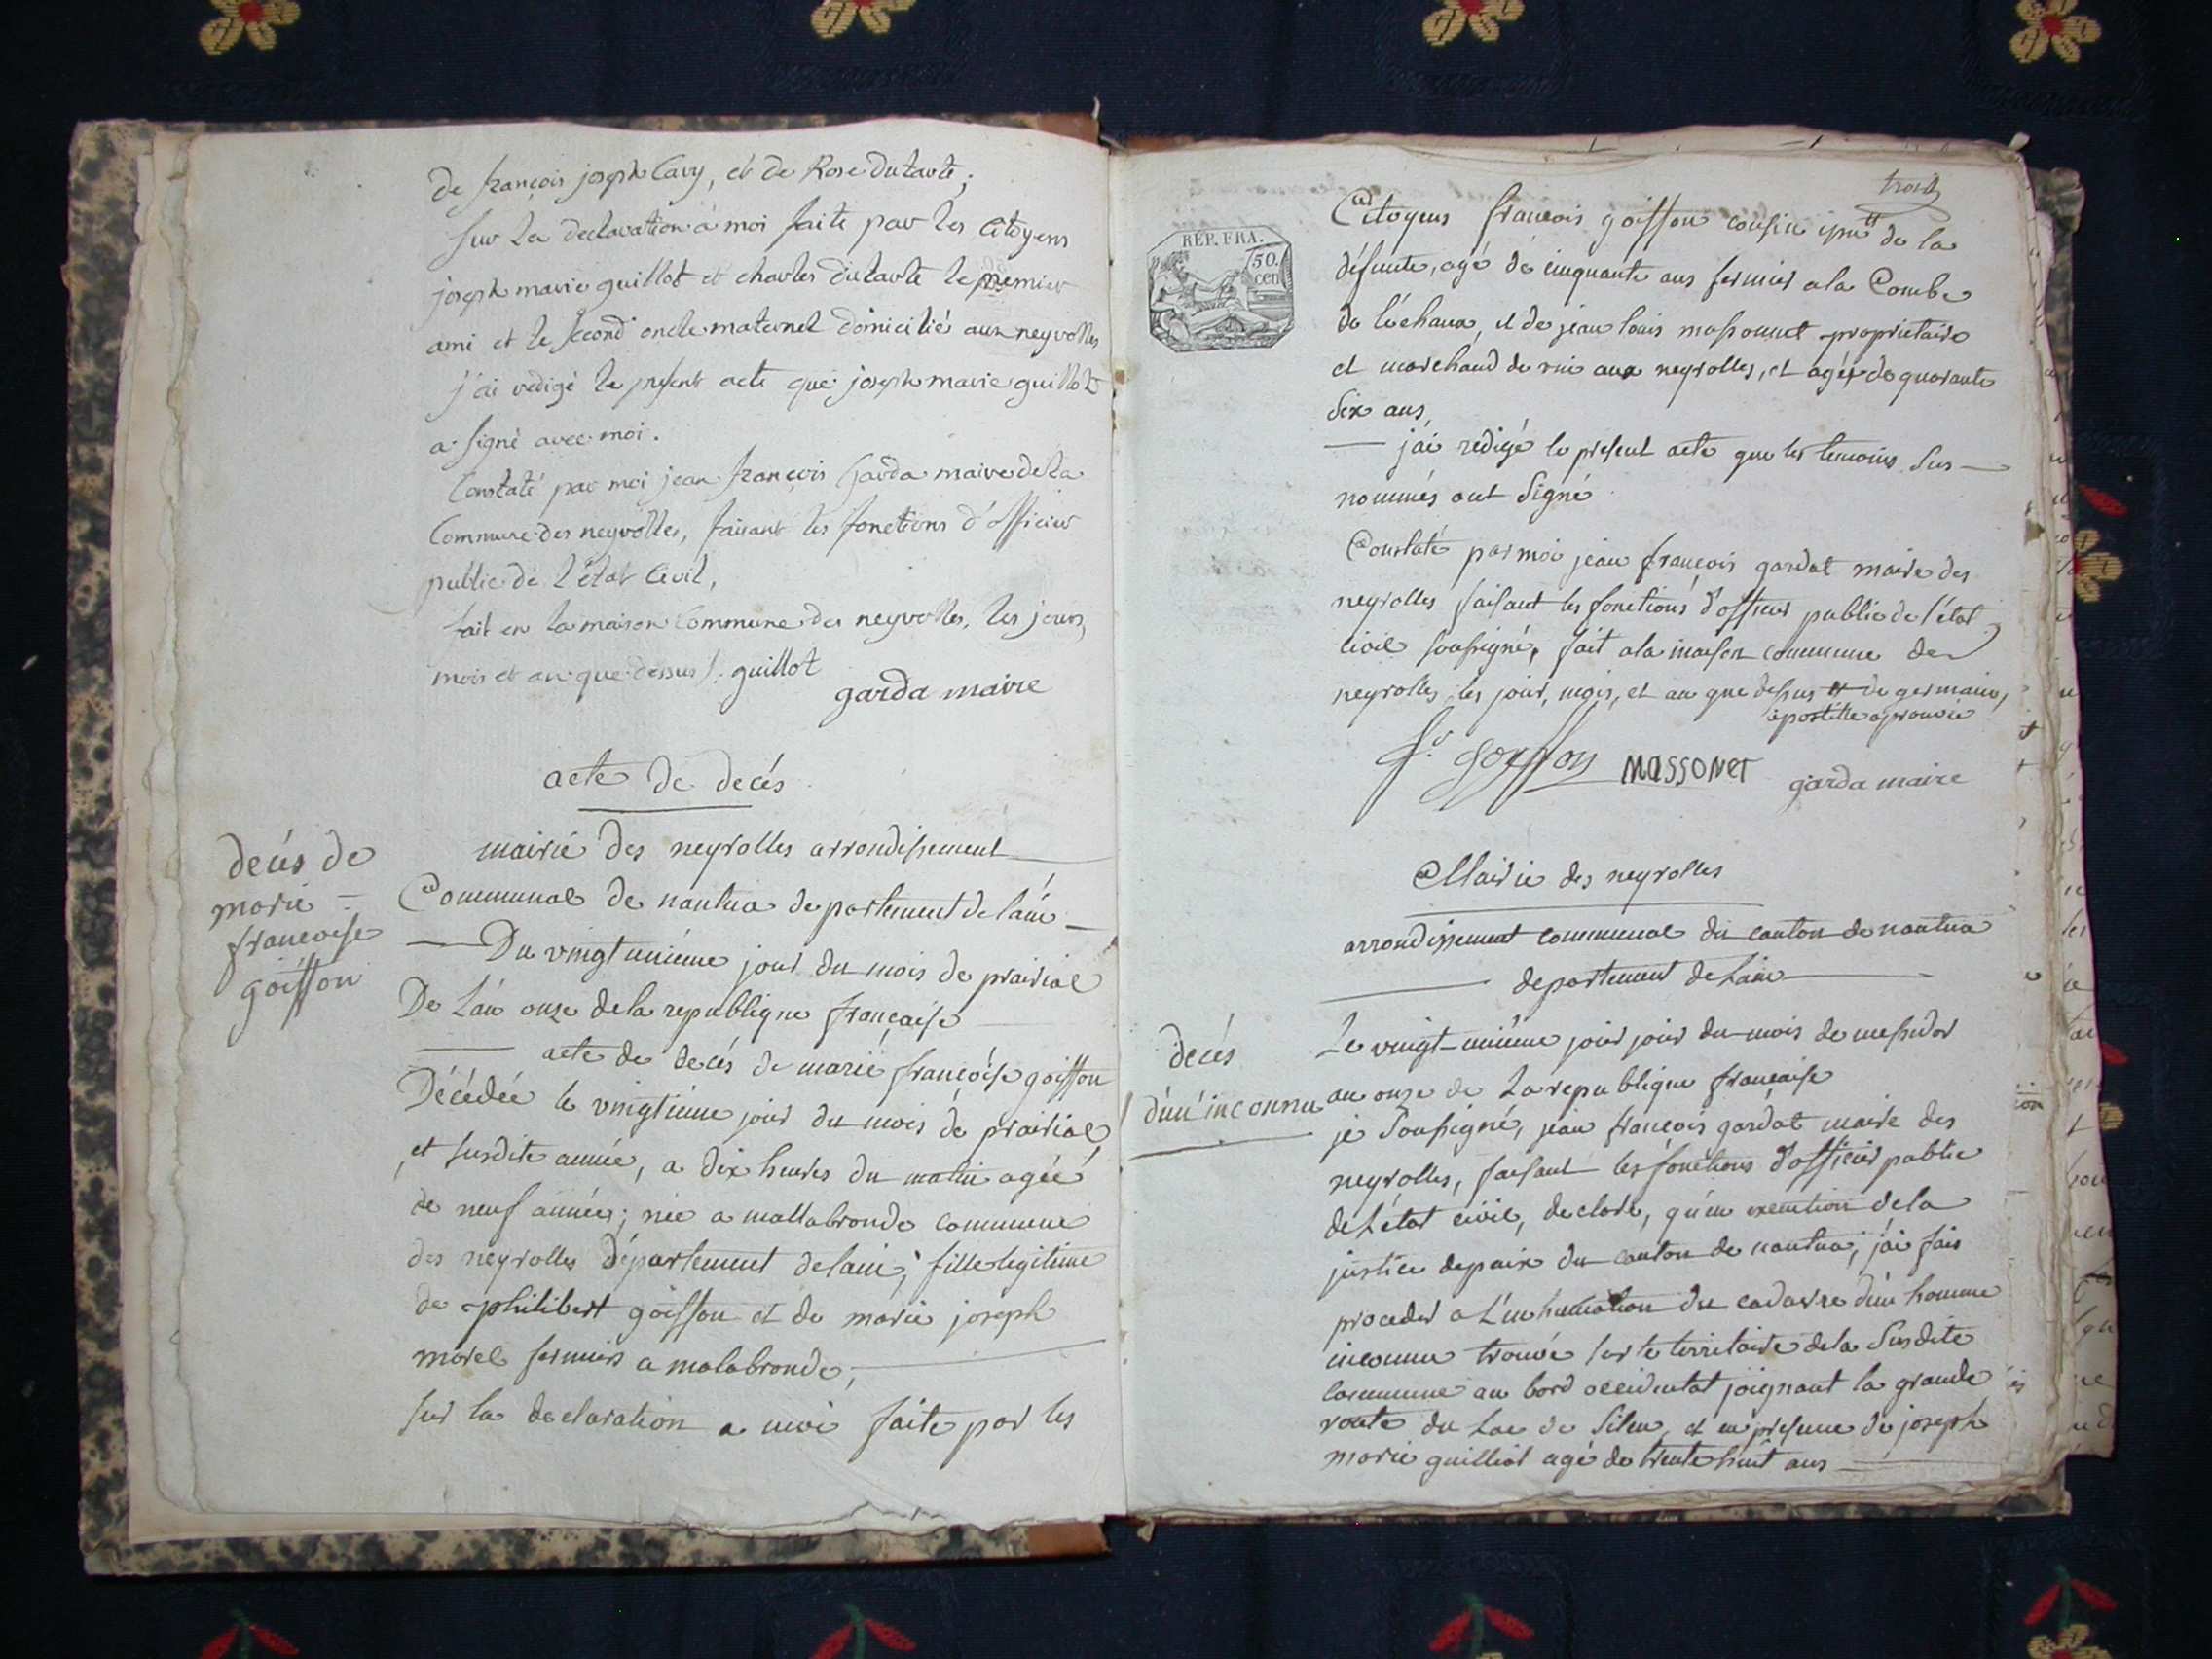 de françois joseph Cavy, et de Rose dutarte;
sur la declaration a moi faite par les Citoyens
joseph marie guillot et charles dutarte le premier
ami et le second oncle maternel domicilié aux neyrolles
j'ai redigé le present acte que joseph marie guillot
a signé avec moi.
Constaté par moi jean françois Garda maire de la
Commune des neyrolles, faisant les fonctions d'officier
public de l'état Civil,
fait en la maison Commune des neyrolles, les jours,
mois et an que dessus /. guillot
garda maire
acte de decés
decés de
marie =
francoise
goiffon
mairie des neyrolles arrondissement
Communal de nantua departement de lain
Du vingt unieme jour du mois de prairial
De L'an onze de la republique française
acte de decés de marie françoise goiffon
Décédée le vingtieme jour du mois de prairial,
et susdite année, a dix heures du matin agée
de neuf années; née a mallabronde commune
des neyrolles département de lain; fille legitime
de philibert goiffon et de marie joseph
morel fermiers a malabronde;
sur la declaration a moi faite par les
trois
RÉP. FRA.
50.
cen
Citoyens francois goiffon cousin # de la
défunte, agé de cinquante ans fermier a la Combe
de léchaux, et de jean louis massonnet proprietaire
et marchand de vin aux neyrolles, et agé de quarante
Six ans,
jai redigé le present acte que les temoins Sus-
nommés ont Signé
Constaté par moi jean françois gardat maire des
neyrolles faisant les fonctions d'officier public de l'état
civil soussigné, fait a la maison commune des
neyrolles les jour, mois, et an que dessus # de germain,
apostille aprouvée
f.s goiffon MASSONET garda maire
Mairie des neyrolles
arrondissement communal du canton de nantua
departement de Lain
decés
d'un inconnu
Le vingt-unième jour jour du mois de messidor
an onze de La republique française
je Soussigné, jean françois gardat maire des
neyrolles, faisant les fonctions d'officier public
de L'état civil, declare, qu'en execution de la
justice de paix du canton de nantua, j'ai fais
proceder a L'inhumation du cadavre d'un homme
inconnu trouvé sur le territoire de la Susdite
Commune au bord occidental joignant la grande
route du Lac de Silan, et en presence de joseph
marie guilliot agé de trente huit ans